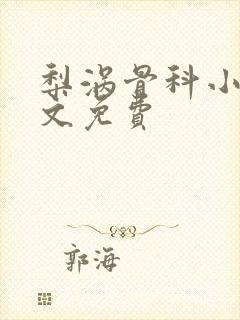 梨涡骨科小
文免費
郭海